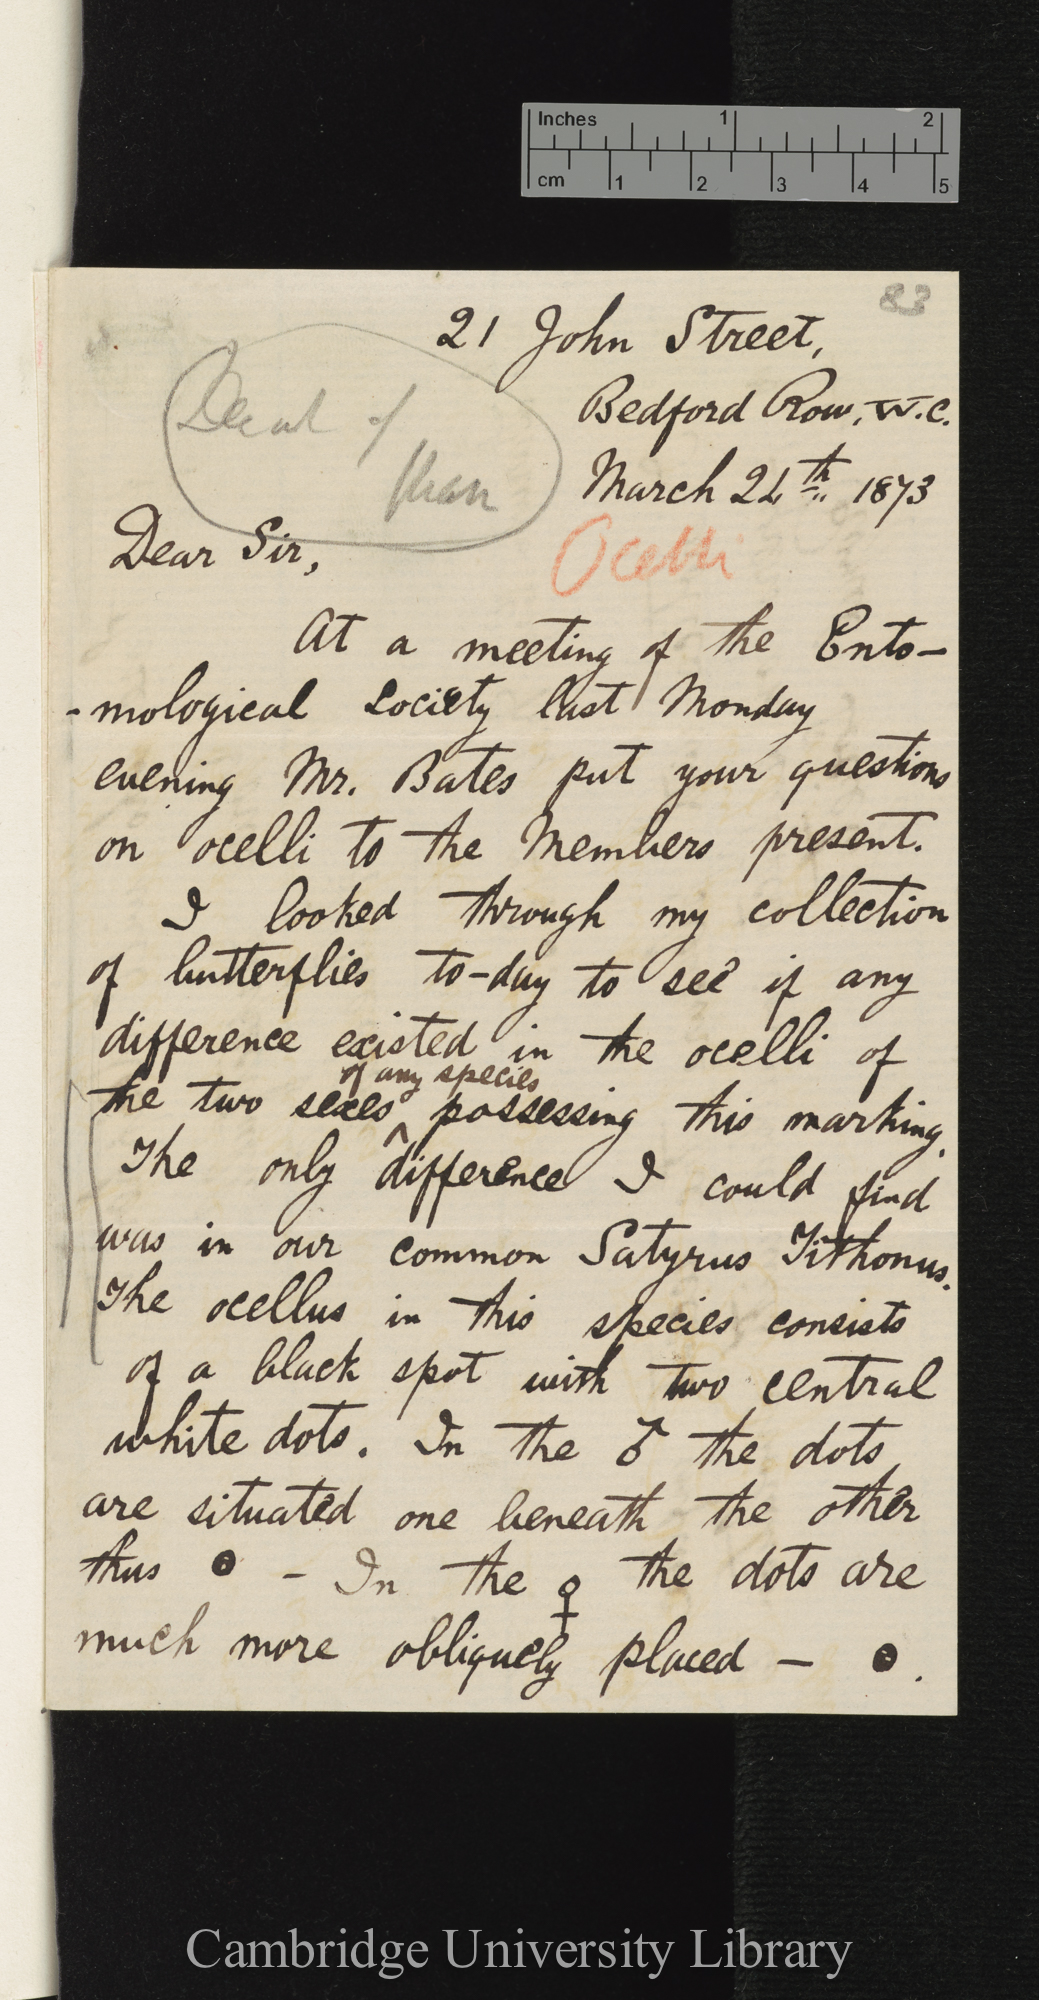 Inches 1 2
cm 1 2 3 4 5
83
21 John Street,
Bedford Row, W.C.
March 24th. 1873
Descent of
Man
Ocelli
Dear Sir,
At a meeting of the Ento-
-mological Society last Monday
evening Mr. Bates put your questions
on ocelli to the Members present.
I looked through my collection
of butterflies to-day to see if any
difference existed in the ocelli of
of any species
the two sexes ^ possessing this marking.
The only difference I could find
was in our common Satyrus Tithonus.
The ocellus in this species consists
of a black spot with two central
white dots. In the ♂ the dots
are situated one beneath the other
thus - In the ♀ the dots are
much more obliquely placed — .
Cambridge University Library